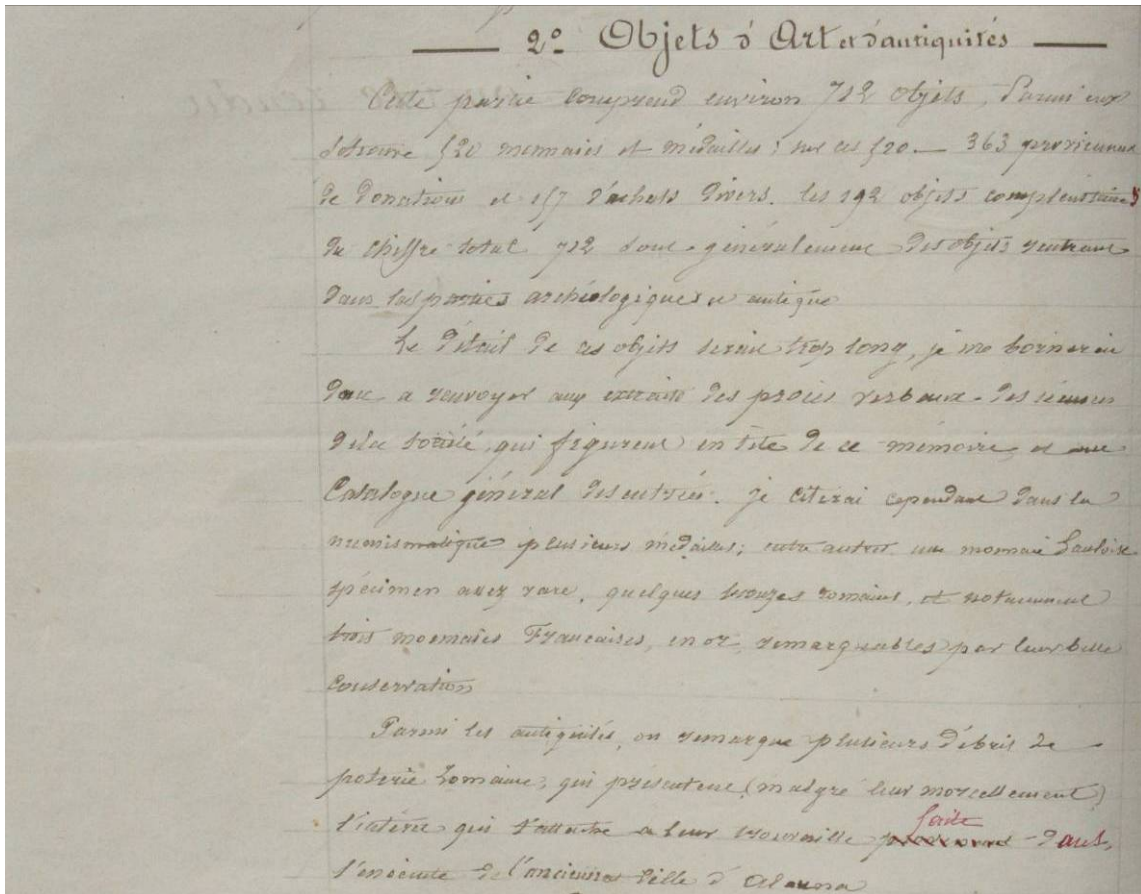 2º Objets d'Art et d'antiquités
Cette partie comprend environ 712 objets, Parmi eux
se trouve 520 monnaies et médailles; sur ces 520 — 363 proviennent
de donations et 157 d'achats divers. les 192 objets complémentaires
du chiffre total 712 sont généralement des objets rentrant
dans les parties archéologiques et antique
Le détail de ces objets serait trop long, je me bornerai
donc a renvoyer aux extraits des procès verbaux des séances
de la société, qui figurent en tête de ce mémoire, et au
Catalogue général des entrées. je citerai cependant dans la
numismatique plusieurs médailles; entre autres une monnaie Gauloise
spécimen assez rare, quelques bronzes romains, et notamment
trois monnaies Françaises, en or, remarquables par leur belle
conservation
Parmi les antiquités, on remarque plusieurs débris de
poterie Romaine, qui présentent (malgré leur morcellement)
l'intérêt qui s'attache a leur trouvaille faite dans
l'enceinte de l'ancienne Ville d'Alauna